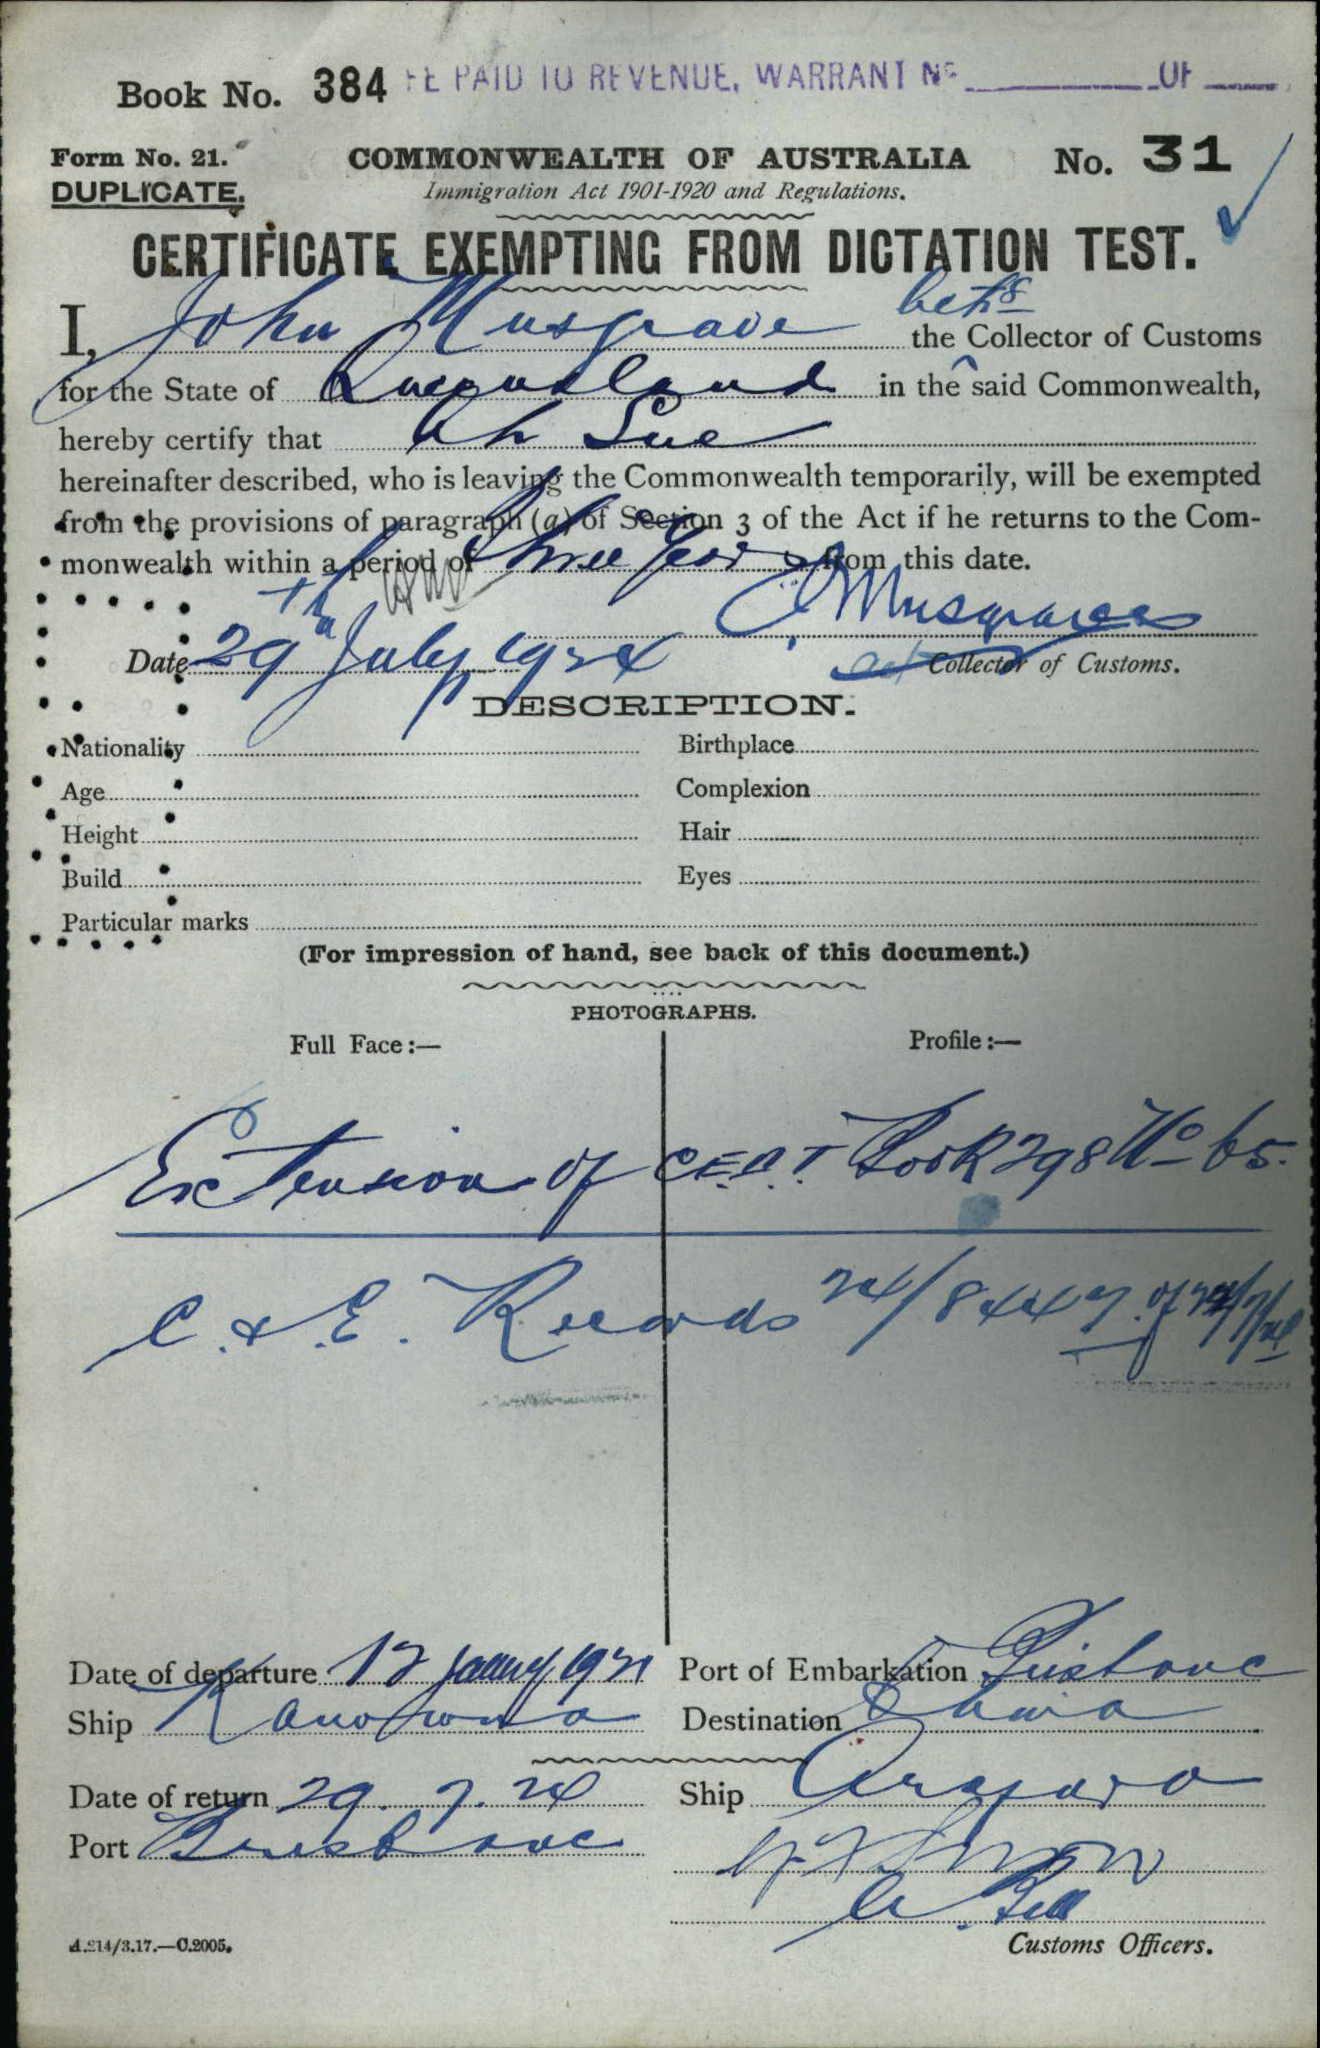 Book No. 384 FE PAID TO REVENUE, WARRANT No ____ OF ____
Form No. 21. COMMONWEALTH OF AUSTRALIA No. 31
DUPLICATE. Immigration Act 1901-1920 and Regulations.
CERTIFICATE EXEMPTING FROM DICTATION TEST.
I, John Musgrave the Collector of Customs
for the State of Queensland in the said Commonwealth,
hereby certify that Ah Sue
hereinafter described, who is leaving the Commonwealth temporarily, will be exempted
from the provisions of paragraph (a) of Section 3 of the Act if he returns to the Com-
monwealth within a period of Three Years from this date.
J Musgrave
Date 29th July 1924 Collector of Customs.
DESCRIPTION.
Nationality Birthplace
Age Complexion
Height Hair
Build Eyes
Particular marks
(For impression of hand, see back of this document.)
PHOTOGRAPHS.
Full Face:— Profile:—
Extension of C.E.D.T Book 298 No 65.
C. & E. Records 24/8447 of
Date of departure 12 January 1921 Port of Embarkation Brisbane
Ship Kanowna Destination China
Date of return 29.7.24 Ship Arafura
Port Brisbane
A. Bell
A.214/3.17.—C.2005. Customs Officers.